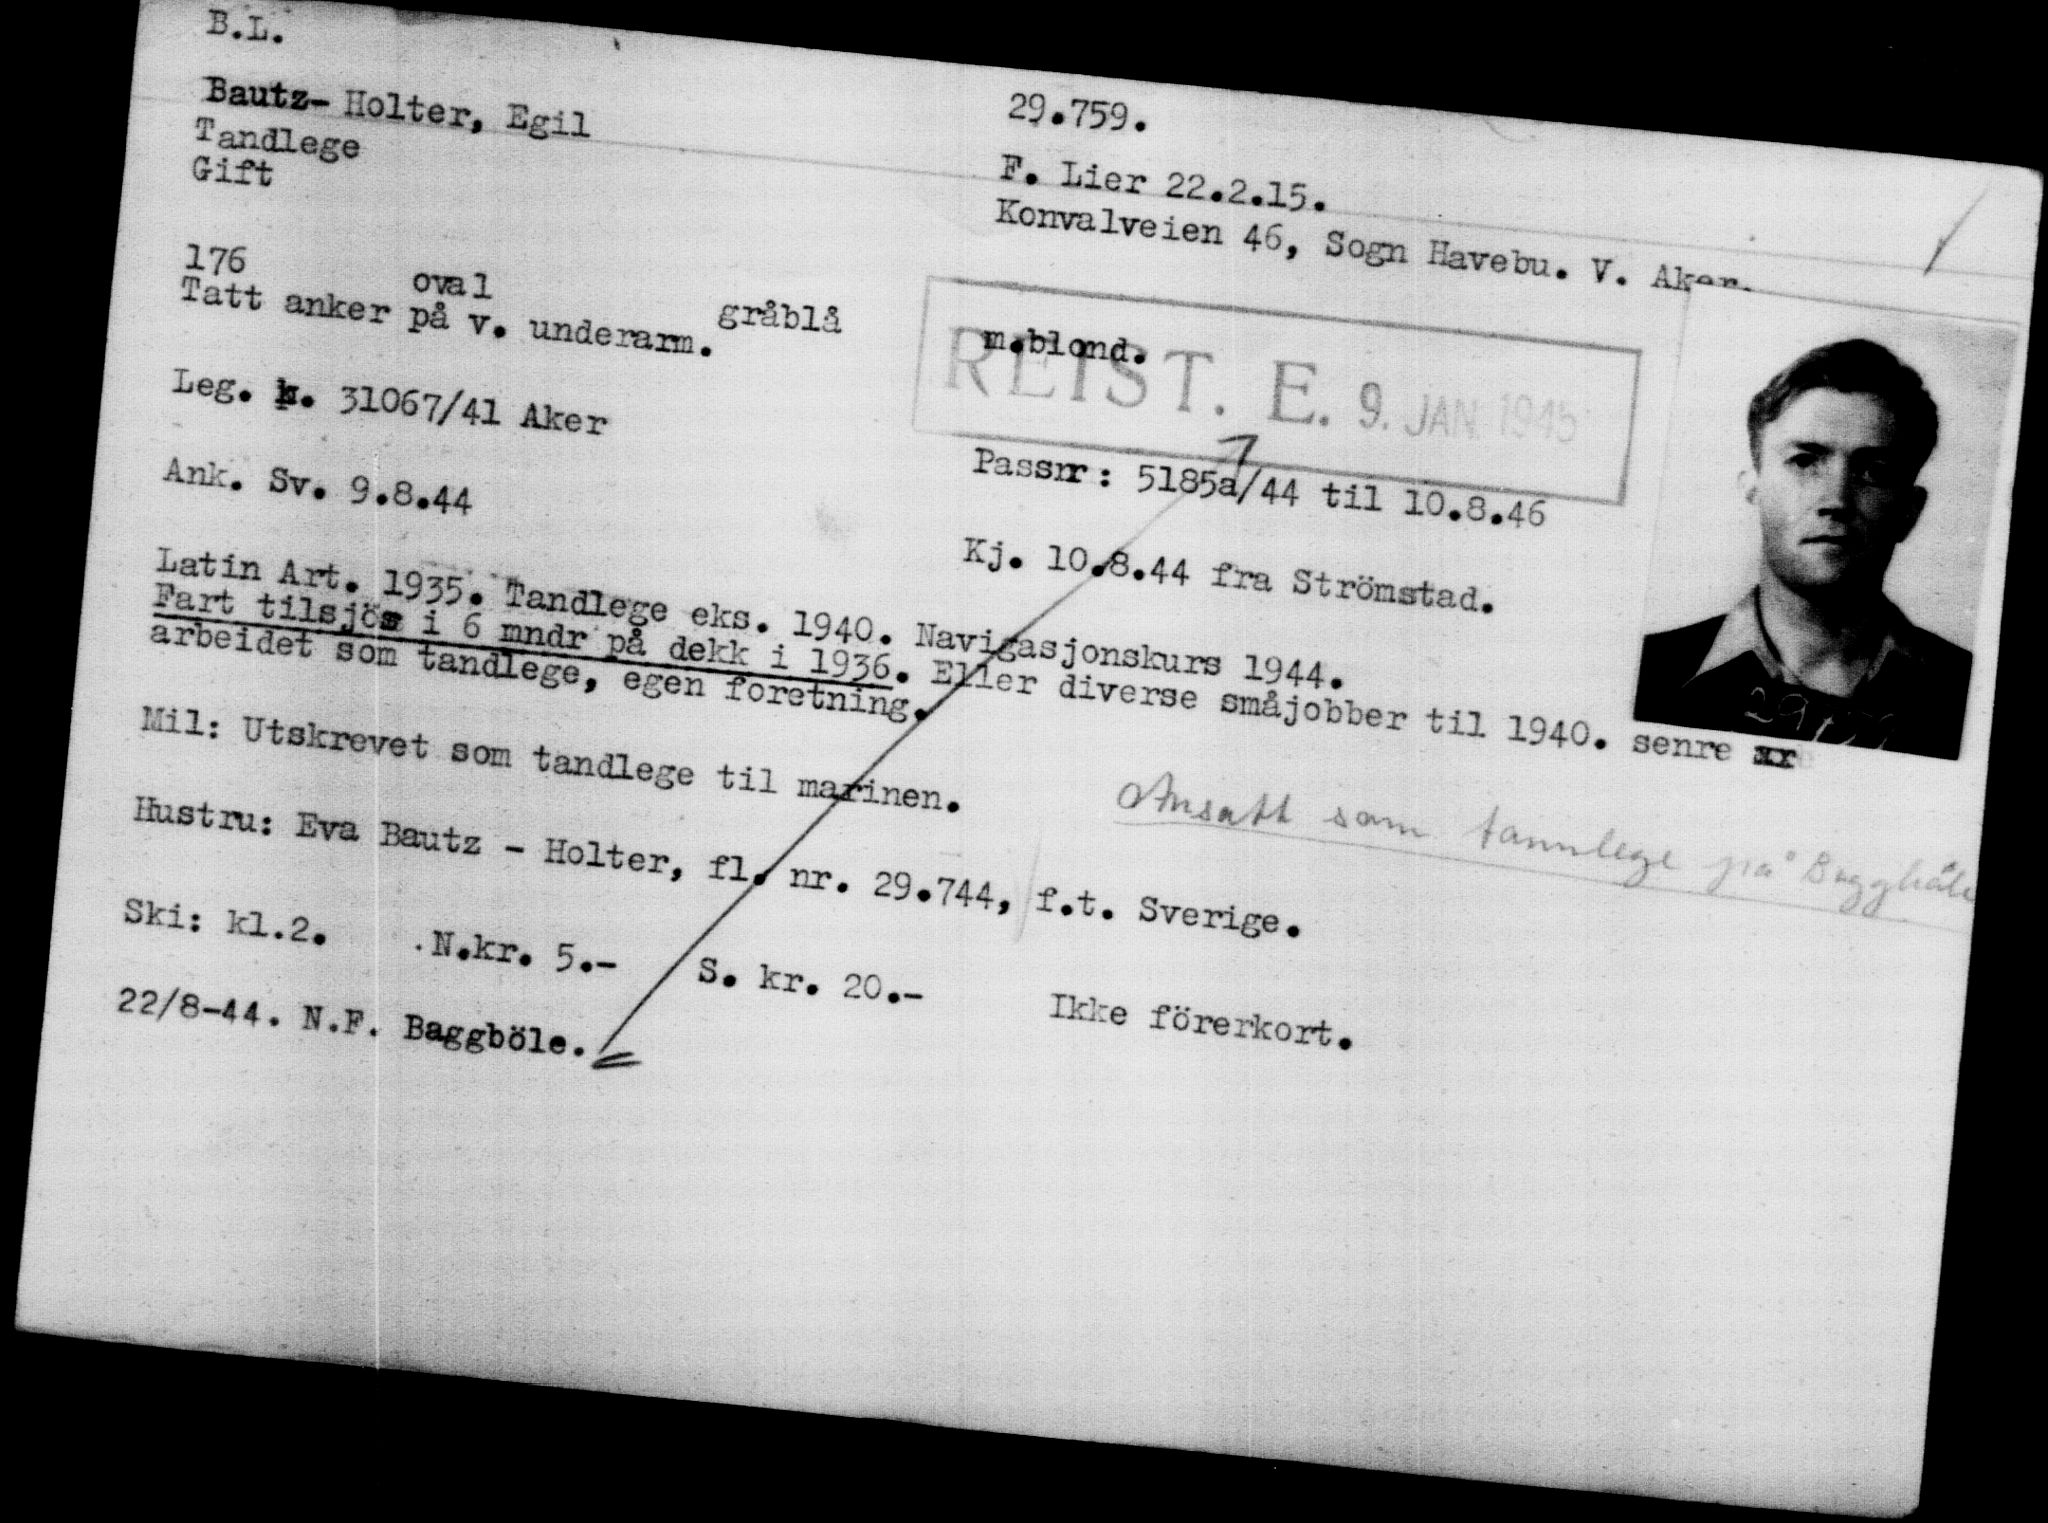 B.L.
Bautz- Holter, Egil 29.759.
Tandlege F. Lier 22.2.15.
Gift Konvalveien 46, Sogn Havebu. V. Aker.
176 oval gråblå m.blond.
Tatt anker på v. underarm.
REIST. E. 9. JAN 1945
Leg. k. 31067/41 Aker
Passnr: 5185a/44 til 10.8.46
Ank. Sv. 9.8.44 Kj. 10.8.44 fra Strömstad.
Latin Art. 1935. Tandlege eks. 1940. Navigasjonskurs 1944.
Fart tilsjös i 6 mndr på dekk i 1936. Eller diverse småjobber til 1940. senre
arbeidet som tandlege, egen foretning.
Mil: Utskrevet som tandlege til marinen.
Ansatt som tannlege på
Hustru: Eva Bautz - Holter, fl. nr. 29.744, f.t. Sverige.
Ski: kl.2. N.kr. 5.- S. kr. 20.- Ikke förerkort.
22/8-44. N.F. Baggböle.